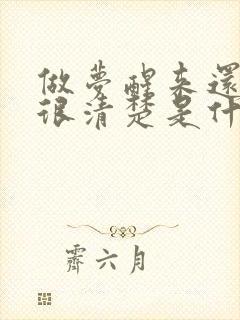 做夢醒來還
很清楚是什
霽六月